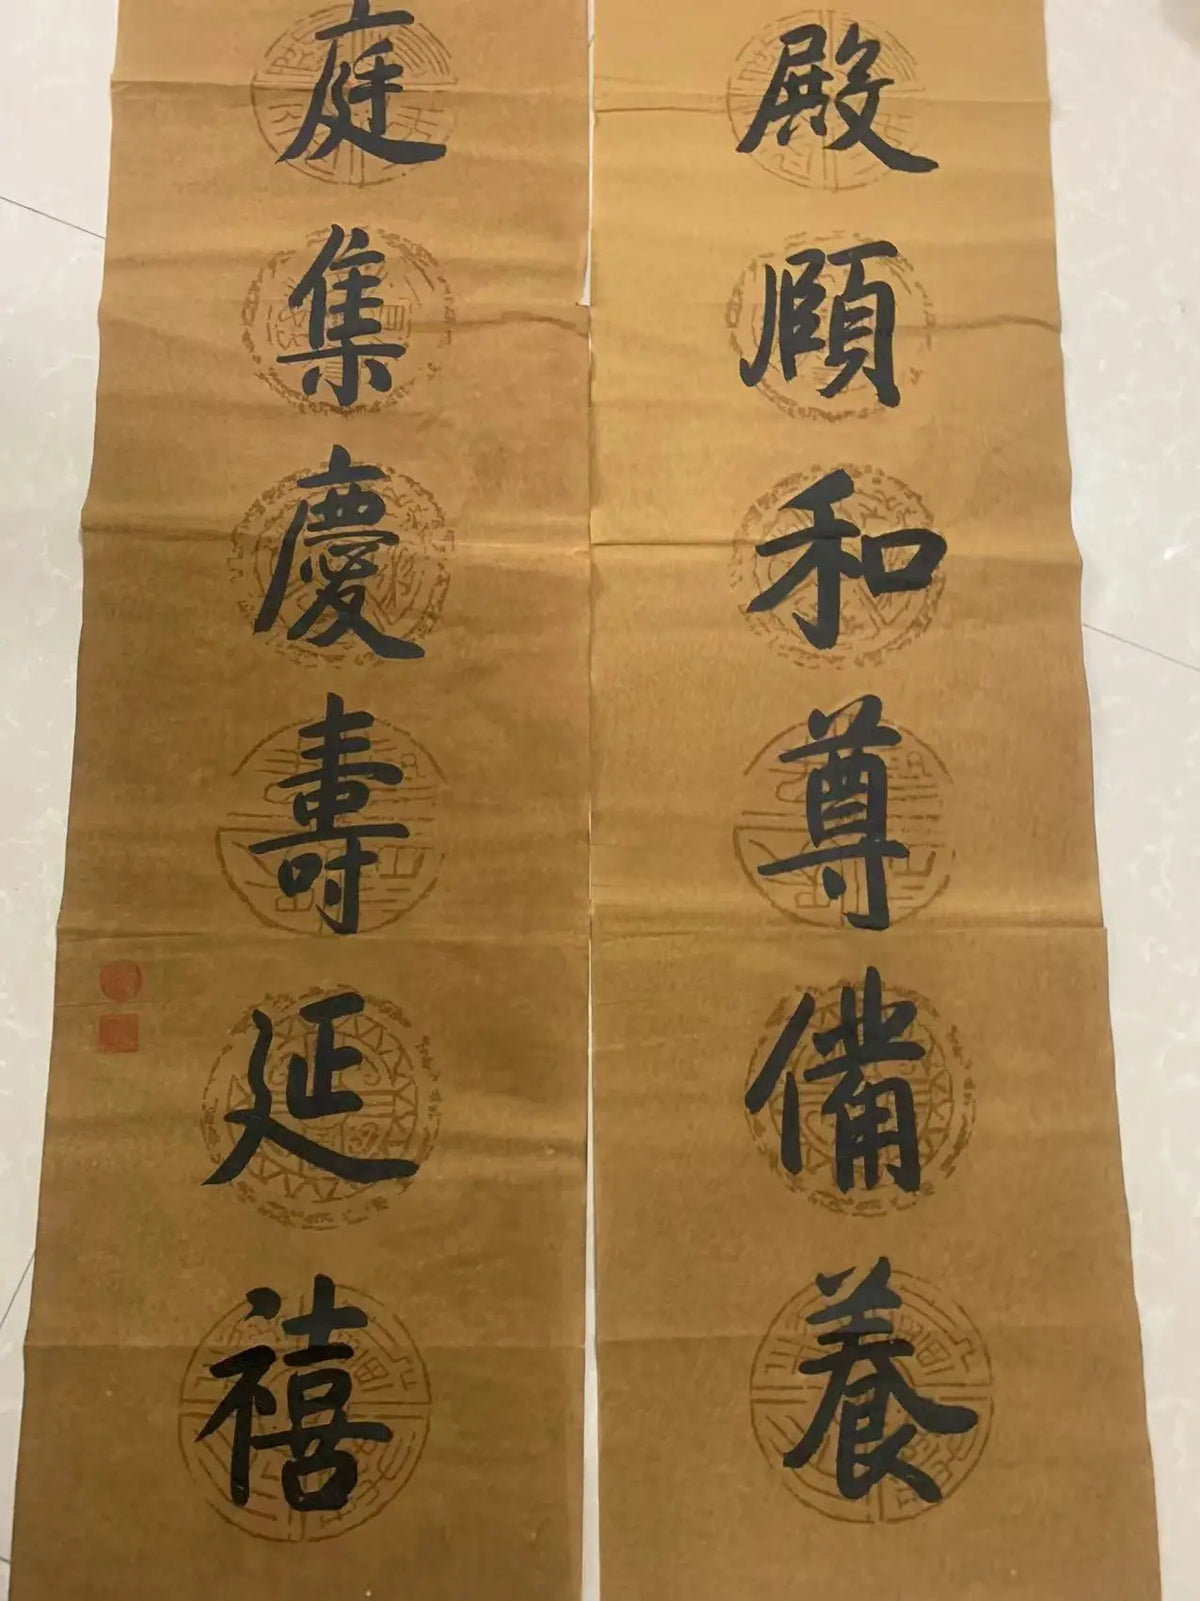 殿頤和尊備養
庭集慶壽延禧